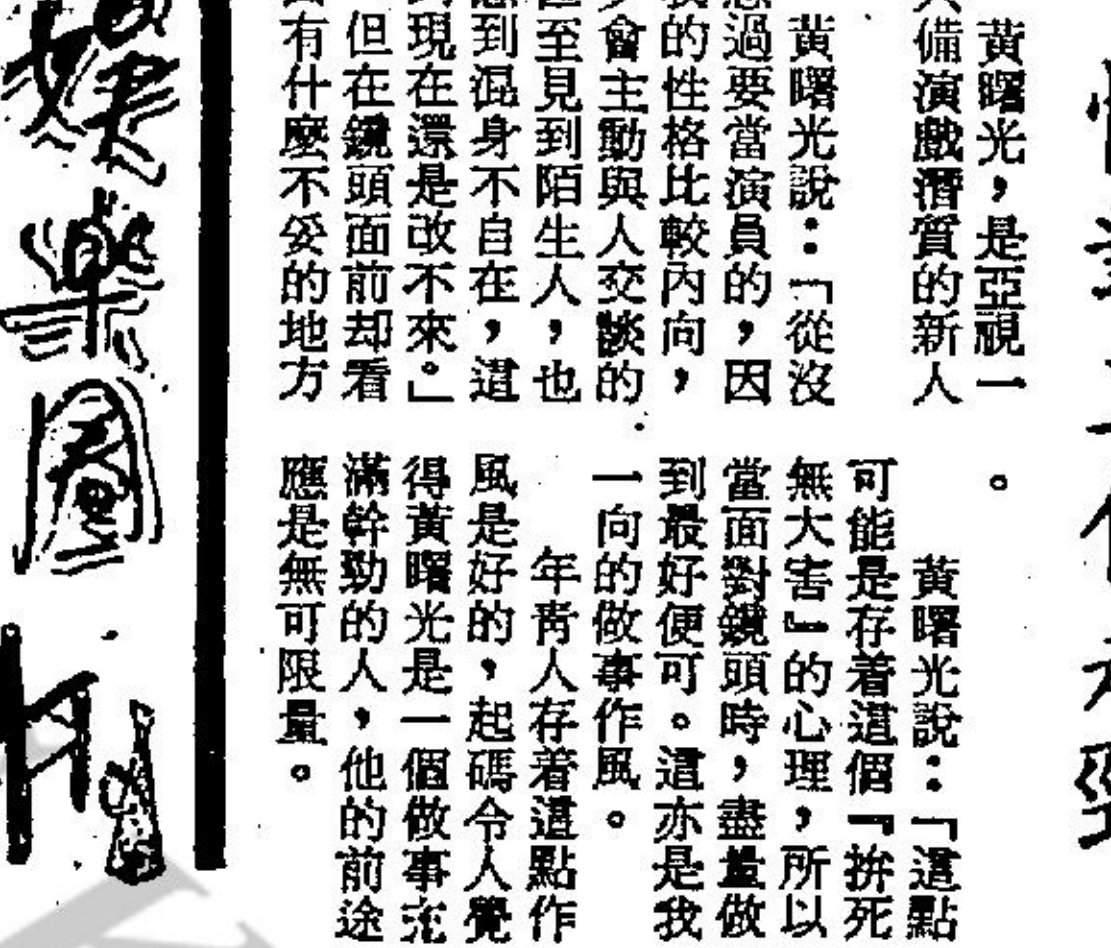 黃曙光，是亞視一
備演戲潛質的新人
。
黃曙光說：「從沒
過要當演員的，因
的性格比較內向，
會主動與人交談的
至見到陌生人，也
到混身不自在，這
現在還是改不來。」
但在鏡頭面前却看
有什麼不妥的地方
黃曙光說：「這點
可能是存着這個『拚死
無大害』的心理，所以
當面對鏡頭時，盡量做
到最好便可。這亦是我
一向的做事作風。
年青人存着這點作
風是好的，起碼令人覺
得黃曙光是一個做事充
滿幹勁的人，他的前途
應是無可限量。
娛樂圈